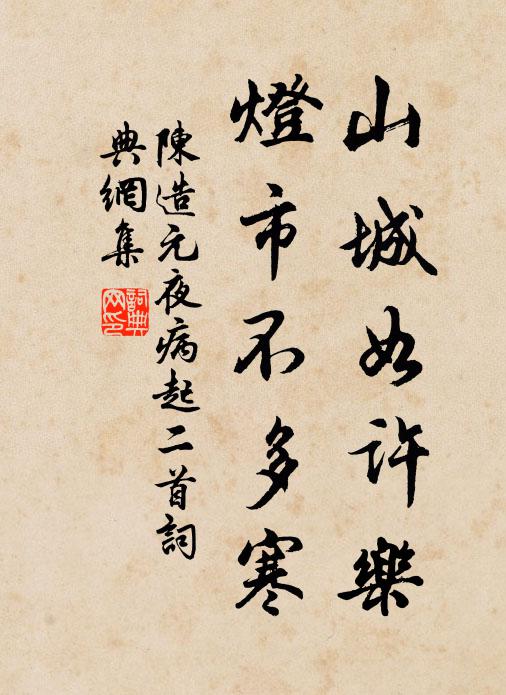 山城如許樂
燈市不多寒
陳造元夜病起二首詞
典網集
詞典網印